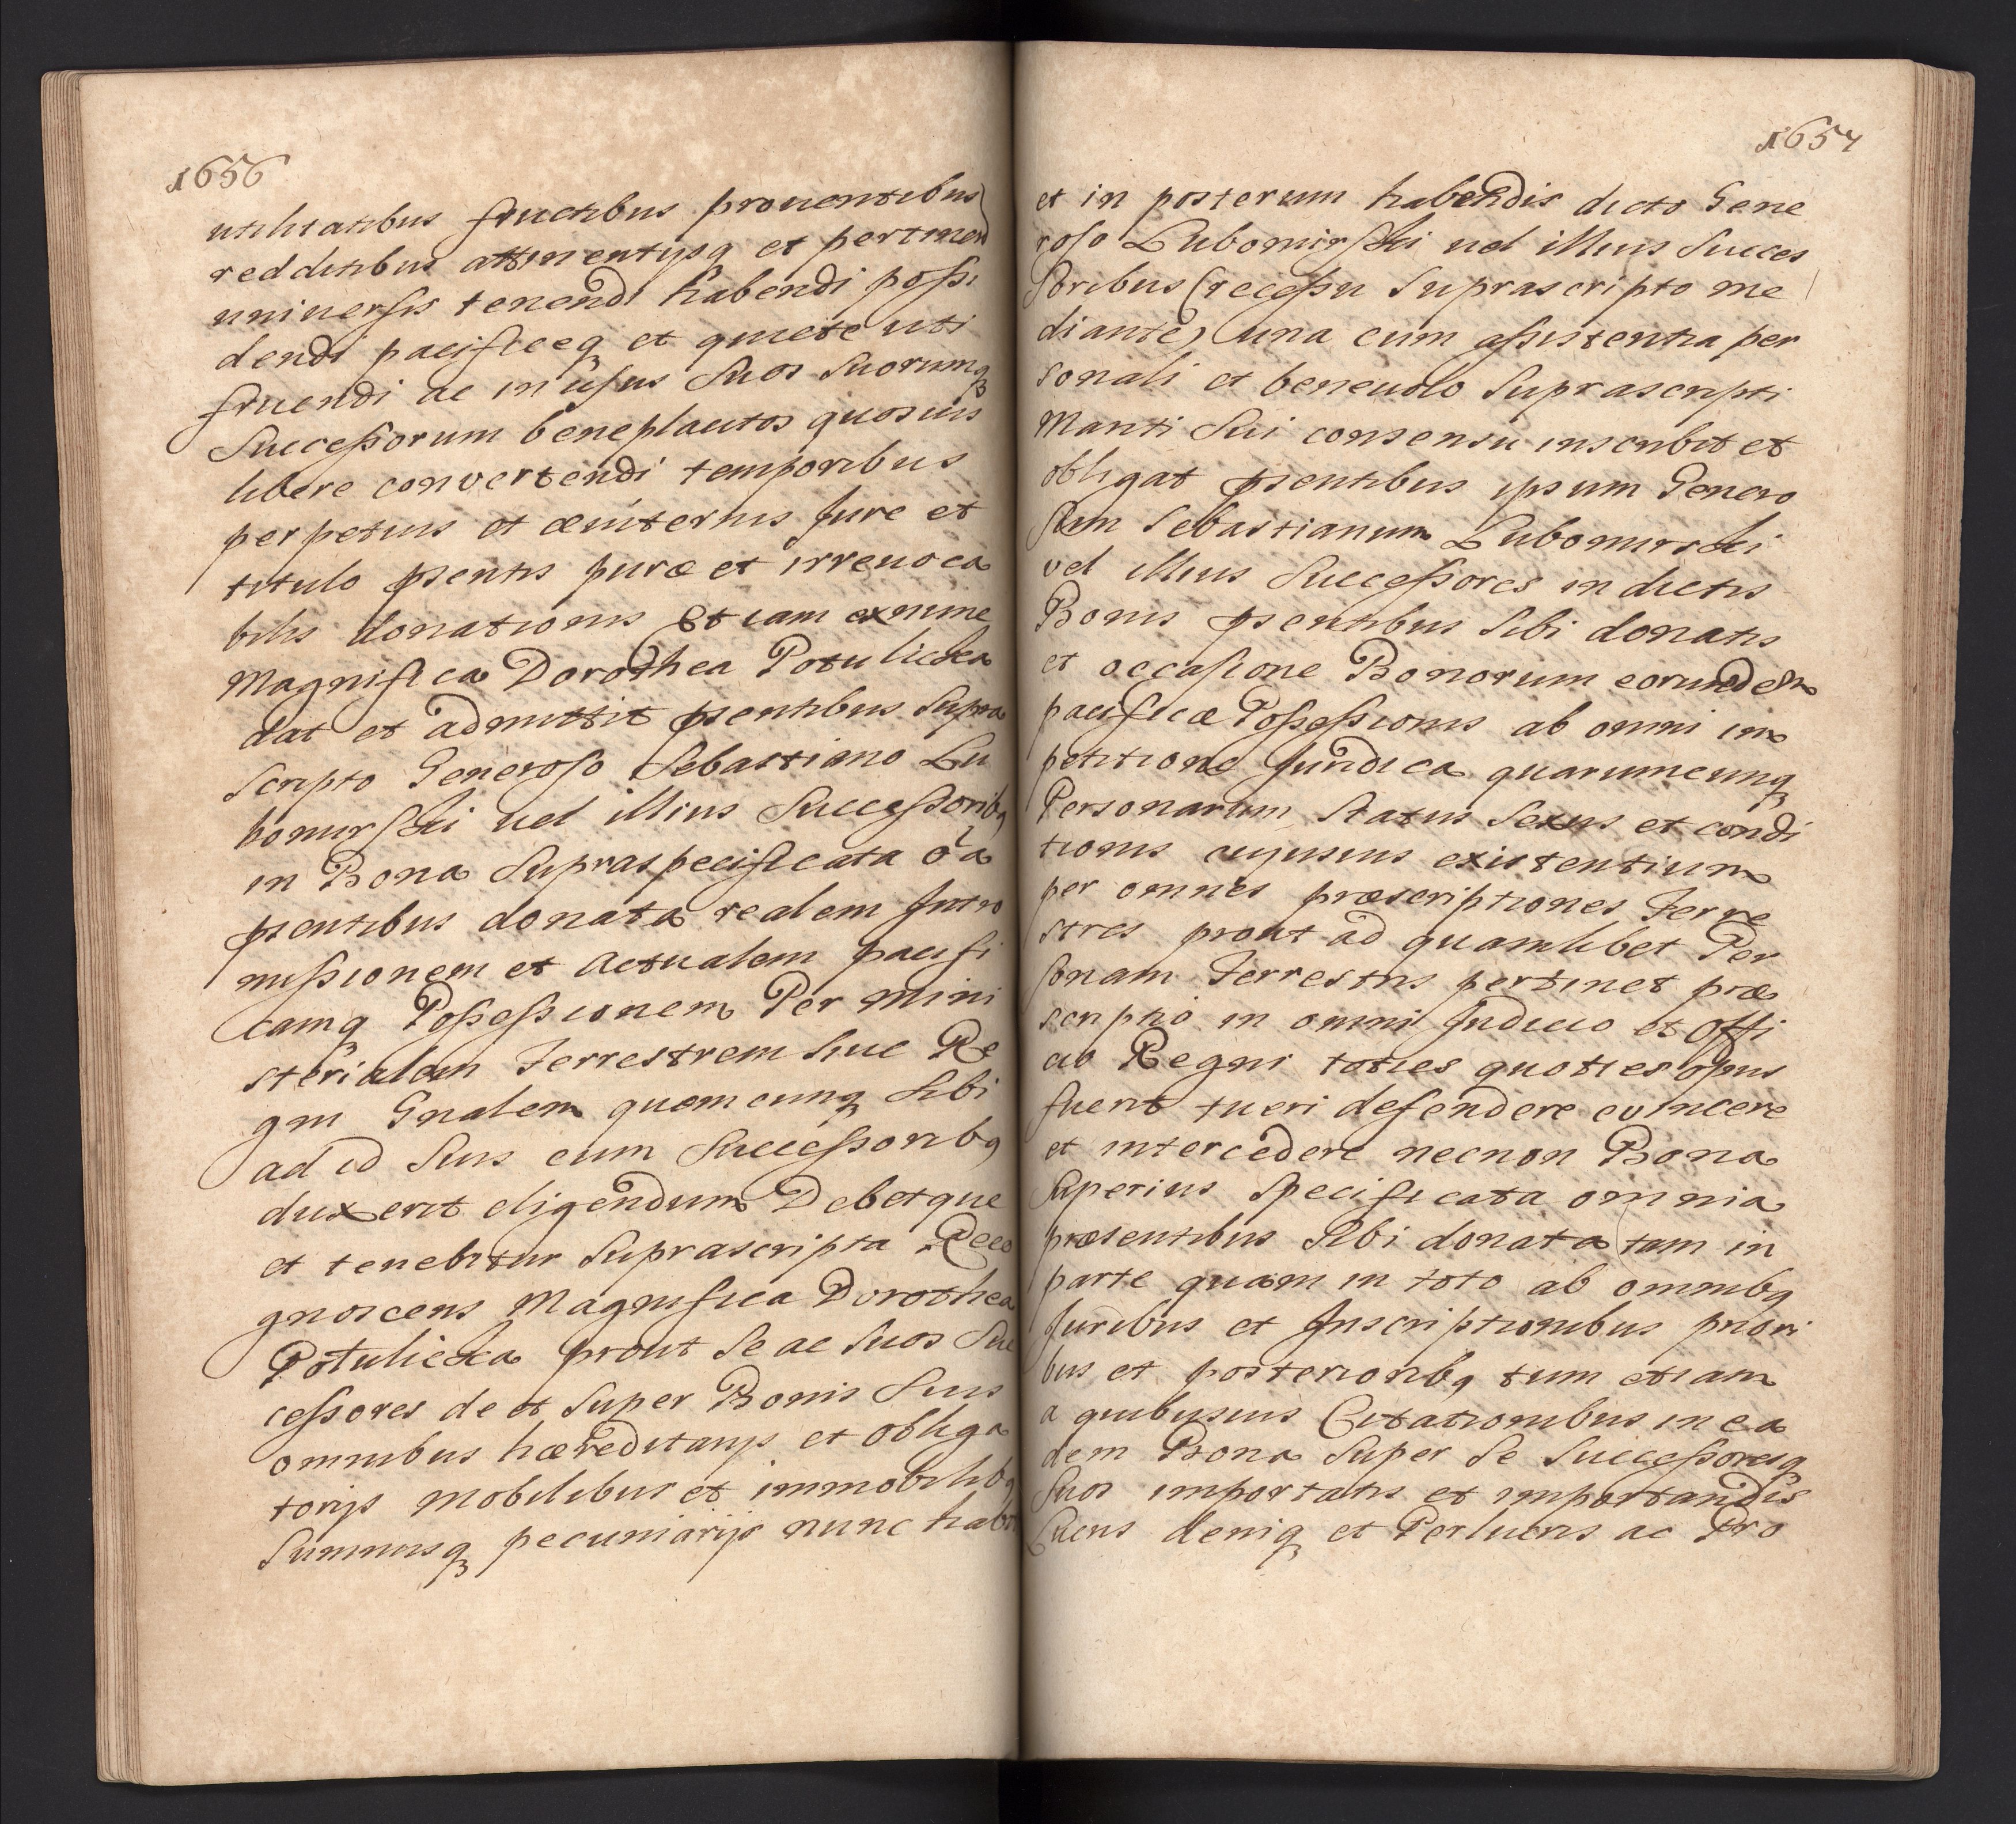 1656
utilitatibus fructibus prouentibus
redditibus attinentijsq et pertinen
uniuersis tenendi habendi possi
dendi pacificeq et quiete uti
fruendi ac in usus suos suorumq
Successorum beneplacitos quosuis
libere convertendi temporibus
perpetuis et æuiternis Jure et
titulo pſentis puræ et irreuoca
bilis donationis Et iam ex nunc
Magnifica Dorothea Potulicka
dat et admittit pſentibus supra
scripto Generoso Sebastiano Lu
bomirski uel illius Successoribq
in Bona supraspecificata oĩa
pſentibus donata realem Intro
missionem et actualem pacifi
camq Possessionem Per mini
sterialem Terrestrem siue Re
gni Gnalem quemcunq sibi
ad id suis cum Successoribq
duxerit eligendum Debetque
et tenebitur suprascripta Reco
gnoscens Magnifica Dorothea
Potulicka prout se ac suos Suc
cessores de et super Bonis suis
omnibus hæreditarijs et obliga
torijs mobilibus et immobilibq
summisq pecuniarijs nunc habi
1657
et in posterum habendis dicto Gene
roso Lubomirski uel illius Succes
soribus (recessu suprascripto me
diante) una cum assistentia per
sonali et beneuolo suprascripti
Mariti sui consensu inscribit et
obligat pſentibus ipsum Genero
sum Sebastianum Lubomirski
vel illius Successores in dictis
Bonis pſentibus sibi donatis
et occasione Bonorum eorundem
pacificæ Possessionis ab omni im
petitione Juridica quarumcunq
Personarum status sexus et condi
tionis cujusuis existentium
per omnes præscriptiones Terre
stres prout ad quamlibet Per
sonam Terrestris pertinet præ
scriptio in omni Judicio et Offi
cio Regni toties quoties opus
fuerit tueri defendere euincere
et intercedere necnon Bona
superius specificata omnia
præsentibus sibi donata tam in
parte quam in toto ab omnibq
Juribus et Inscriptionibus priori
bus et posterioribq tum etiam
a quibusuis Citationibus in ea
dem Bona super se Successoresq
suos importatis et importandis
Lucris deniq et Perlucris ac Pro